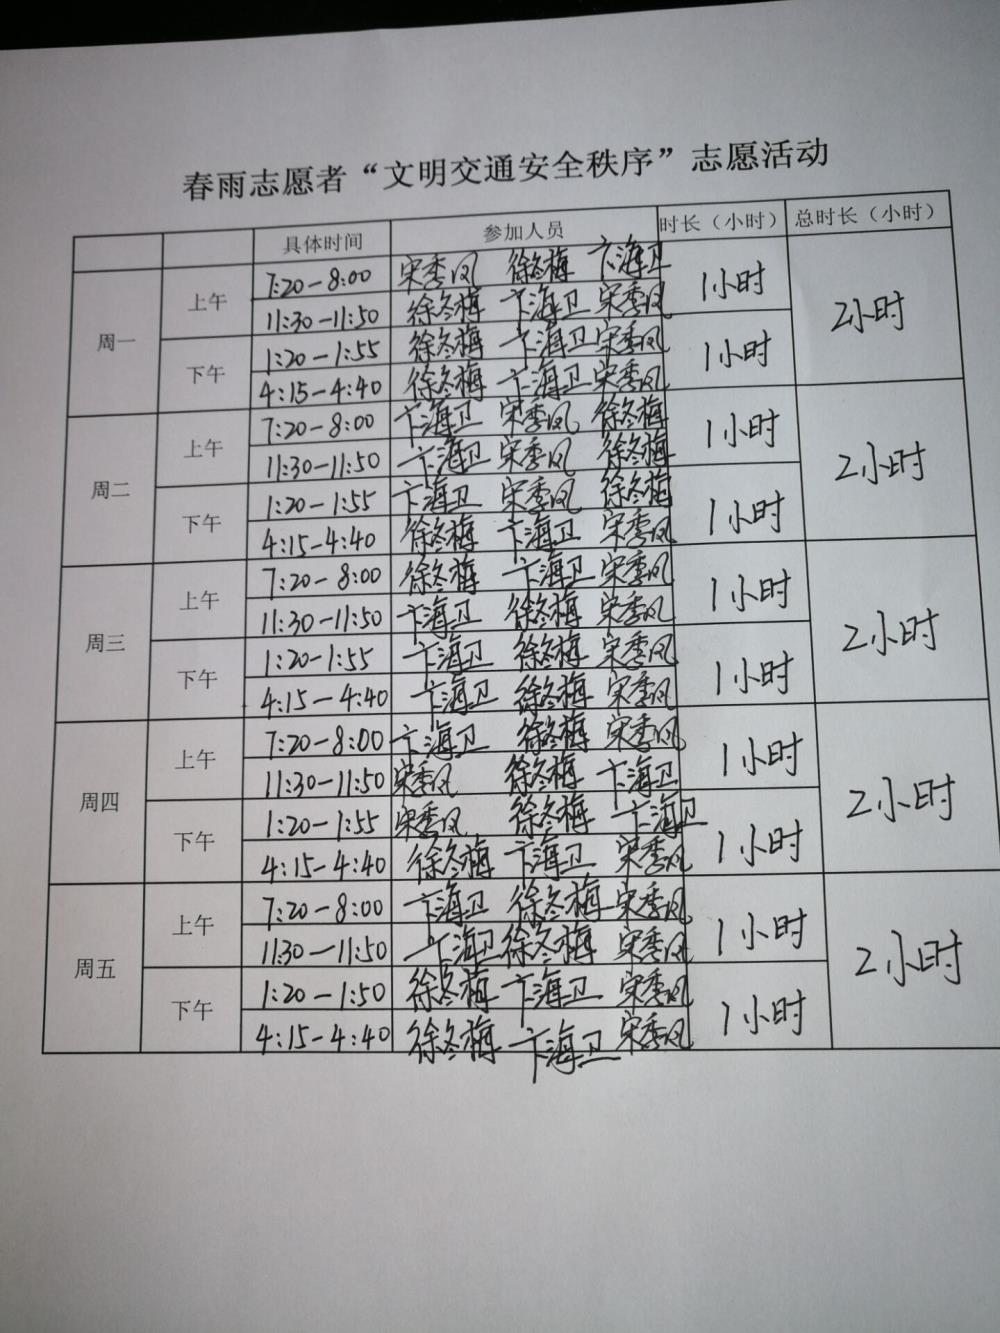 春雨志愿者“文明交通安全秩序”志愿活动
具体时间 参加人员 时长（小时） 总时长（小时）
周一 上午 7:20-8:00 宋季风 徐冬梅 卞海卫 1小时 2小时
11:30-11:50 徐冬梅 卞海卫 宋季风
下午 1:20-1:55 徐冬梅 卞海卫 宋季风 1小时
4:15-4:40 徐冬梅 卞海卫 宋季风
周二 上午 7:20-8:00 卞海卫 宋季风 徐冬梅 1小时 2小时
11:30-11:50 卞海卫 宋季风 徐冬梅
下午 1:20-1:55 卞海卫 宋季风 徐冬梅 1小时
4:15-4:40 徐冬梅 卞海卫 宋季风
周三 上午 7:20-8:00 徐冬梅 卞海卫 宋季风 1小时 2小时
11:30-11:50 卞海卫 徐冬梅 宋季风
下午 1:20-1:55 卞海卫 徐冬梅 宋季风 1小时
4:15-4:40 卞海卫 徐冬梅 宋季风
周四 上午 7:20-8:00 卞海卫 徐冬梅 宋季风 1小时 2小时
11:30-11:50 宋季风 徐冬梅 卞海卫
下午 1:20-1:55 宋季风 徐冬梅 卞海卫 1小时
4:15-4:40 徐冬梅 卞海卫 宋季风
周五 上午 7:20-8:00 卞海卫 徐冬梅 宋季风 1小时 2小时
11:30-11:50 卞海卫 徐冬梅 宋季风
下午 1:20-1:50 徐冬梅 卞海卫 宋季风 1小时
4:15-4:40 徐冬梅 卞海卫 宋季风